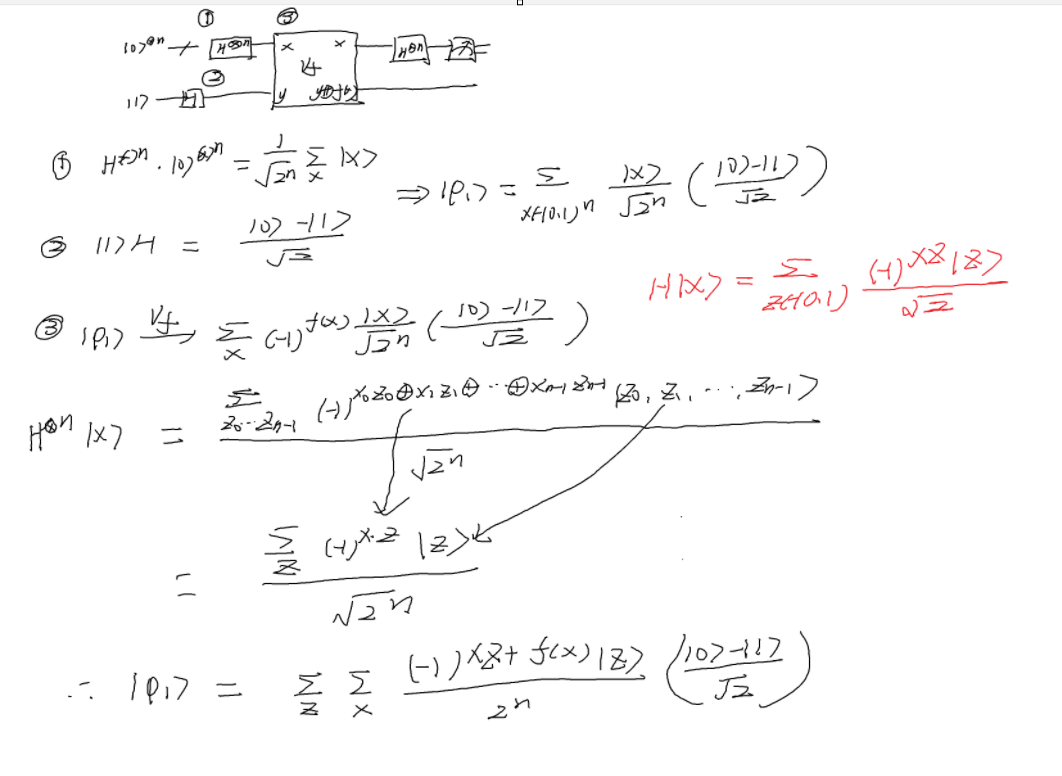 ① ③
|0>^{⊗n} H^{⊗n} x x H^{⊗n}
② U_f
|1> H y y⊕f(x)
① H^{⊗n} · |0>^{⊗n} = \frac{1}{\sqrt{2^n}} Σ_x |x>
⇒ |φ₁> = Σ_{x∈{0,1}^n} \frac{|x>}{\sqrt{2^n}} ( \frac{|0>-|1>}{\sqrt{2}} )
② |1>H = \frac{|0>-|1>}{\sqrt{2}}
H|x> = Σ_{z∈{0,1}} \frac{(-1)^{xz}|z>}{\sqrt{2}}
③ |φ₁> \xrightarrow{U_f} Σ_x (-1)^{f(x)} \frac{|x>}{\sqrt{2^n}} ( \frac{|0>-|1>}{\sqrt{2}} )
H^{⊗n} |x> = \frac{Σ_{z_0…z_{n-1}} (-1)^{x_0z_0⊕x_1z_1⊕…⊕x_{n-1}z_{n-1}} |z_0, z_1, …, z_{n-1}>}{\sqrt{2^n}}
= \frac{Σ_z (-1)^{x·z} |z>}{\sqrt{2^n}}
∴ |φ₁> = Σ_z Σ_x \frac{(-1)^{xz+f(x)}|z>}{2^n} ( \frac{|0>-|1>}{\sqrt{2}} )